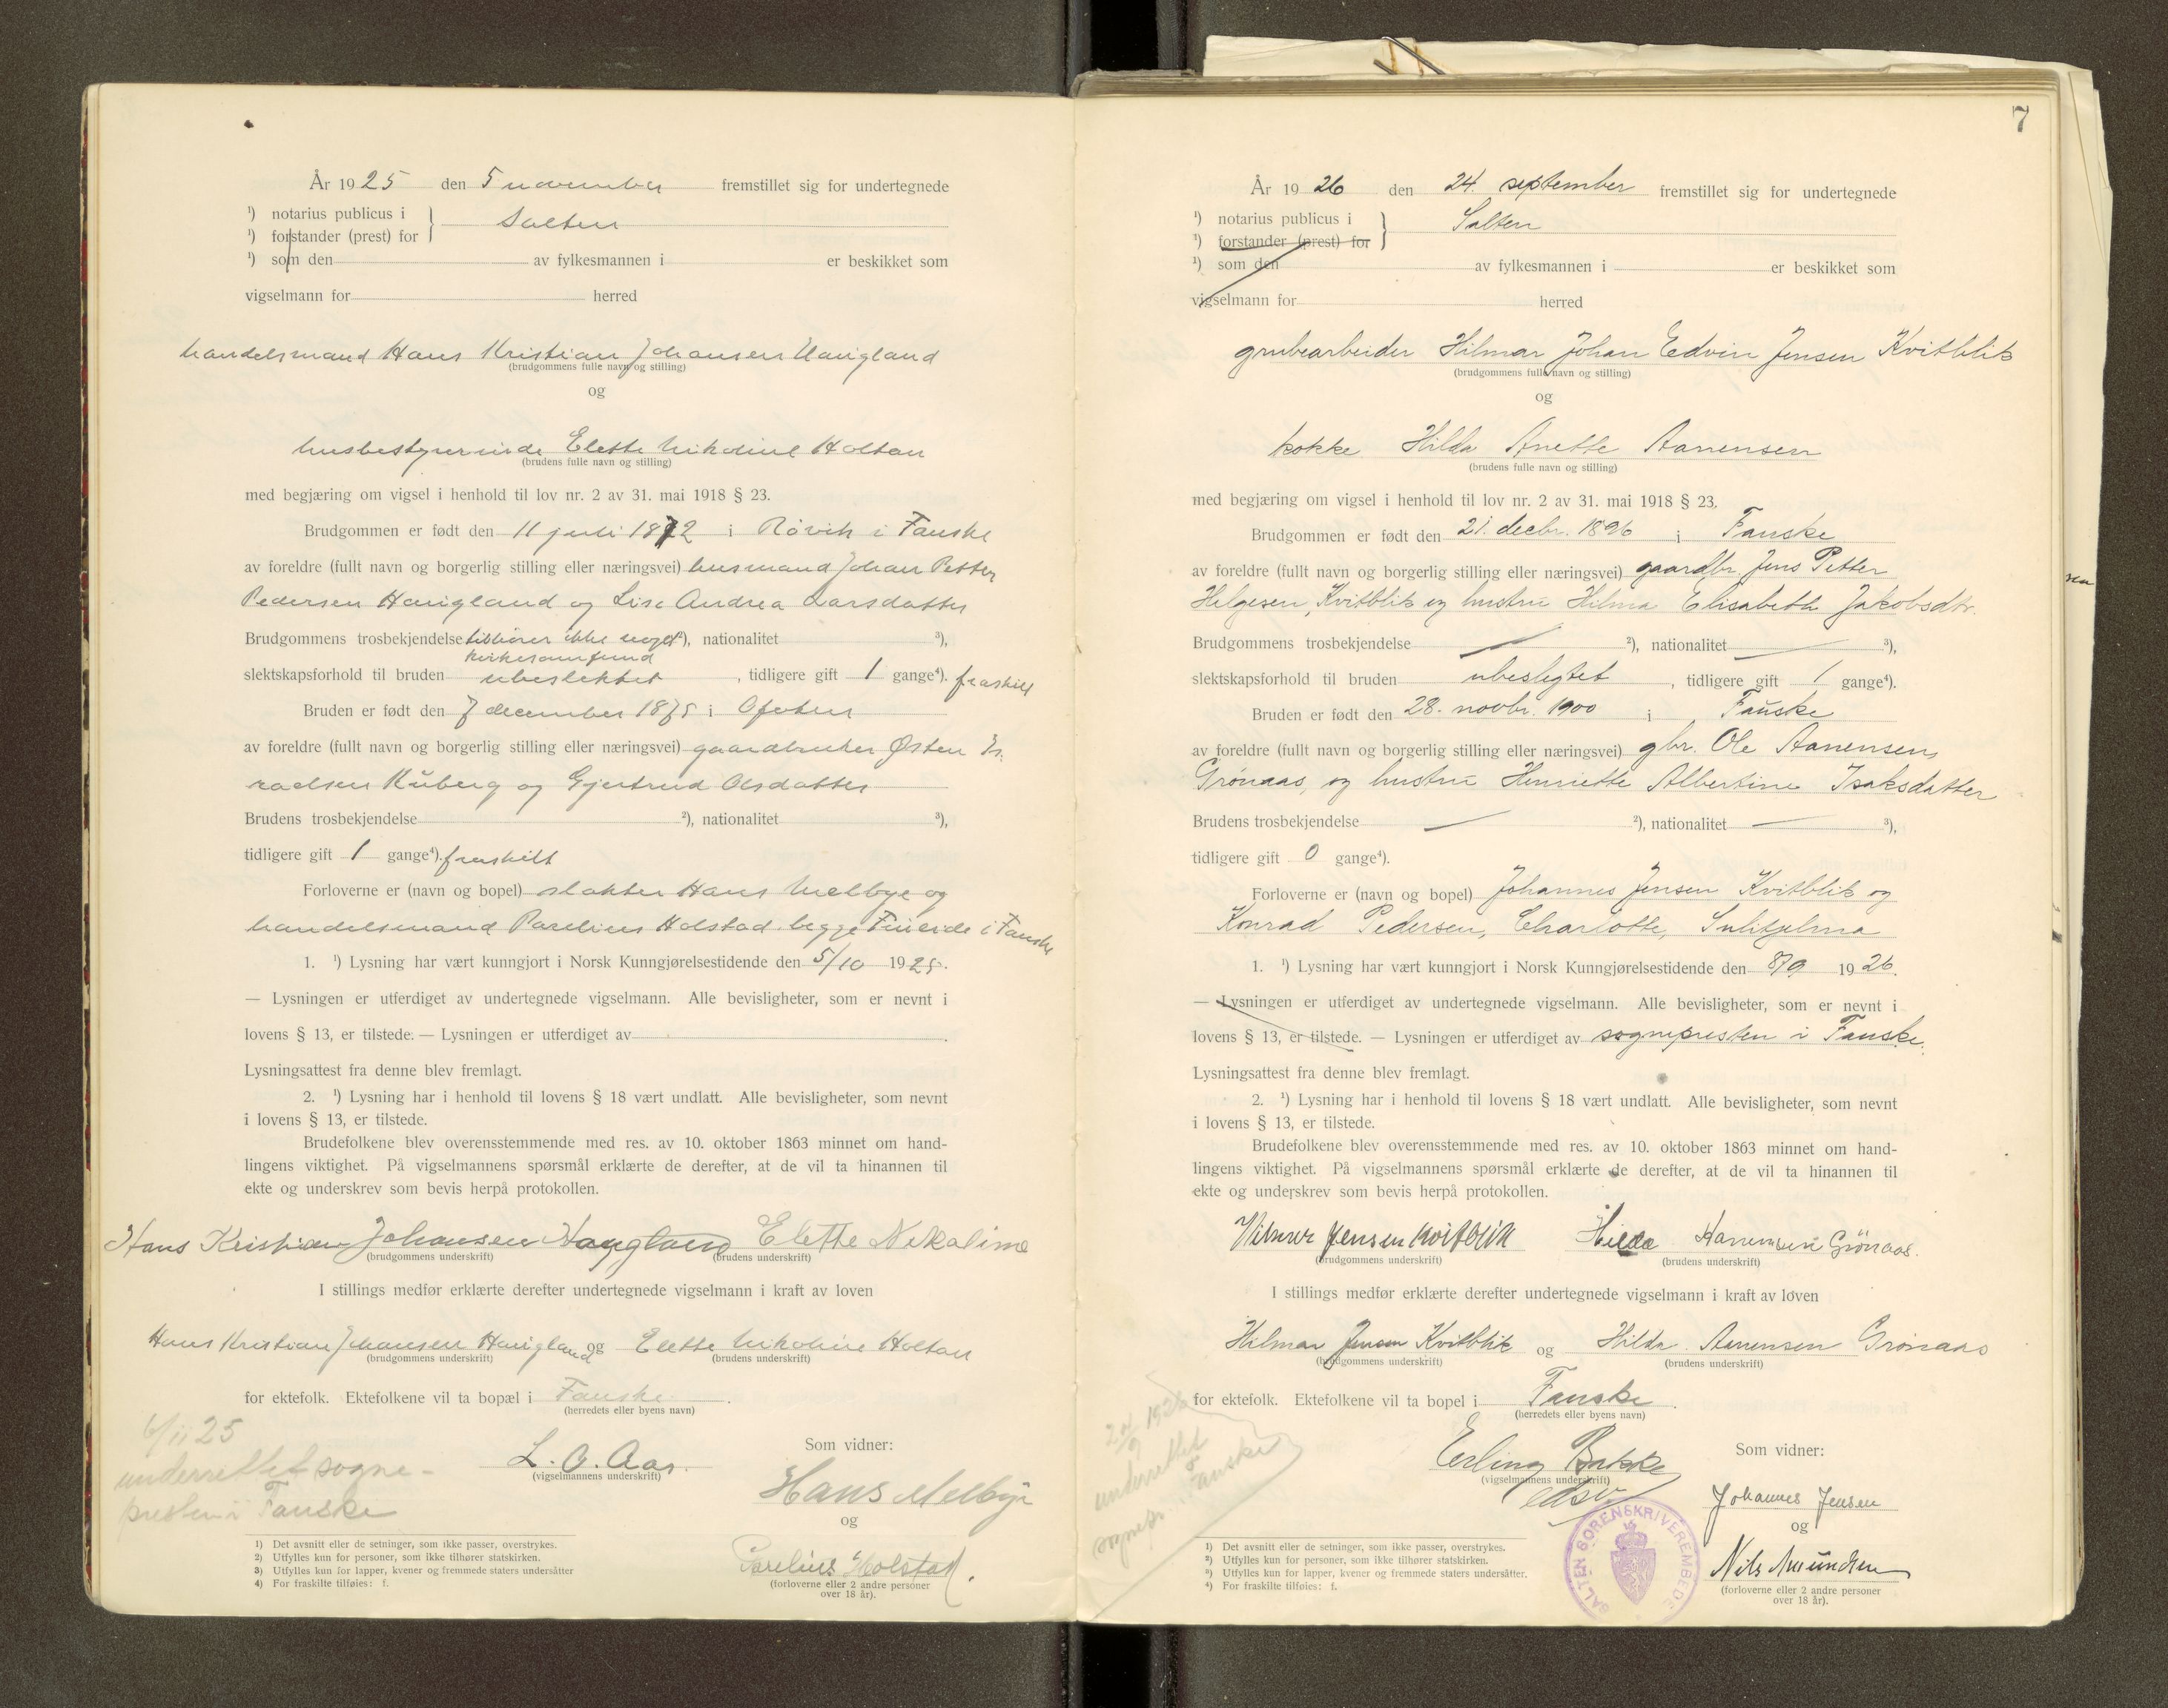 År 1925 den 5 november fremstillet sig for undertegnede
¹) notarius publicus i
¹) forstander (prest) for } Salten
¹) som den av fylkesmannen i er beskikket som
vigselmann for herred
handelsmand Hans Kristian Johansen Haugland
(brudgommens fulle navn og stilling)
og
husbestyrerinde Elette Nikoline Holtan
(brudens fulle navn og stilling)
med begjæring om vigsel i henhold til lov nr. 2 av 31. mai 1918 § 23.
Brudgommen er født den 11 juli 1872 i Røvik i Fauske
av foreldre (fullt navn og borgerlig stilling eller næringsvei) husmand Johan Petter
Pedersen Haugland og Lise Andrea Larsdatter
Brudgommens trosbekjendelse tilhører ikke noget ²), nationalitet ³),
kirkesamfund
slektskapsforhold til bruden ubeslektet, tidligere gift 1 gange⁴). fraskilt
Bruden er født den 7 december 1875 i Ofoten
av foreldre (fullt navn og borgerlig stilling eller næringsvei) gaardbruker Østen Is-
raelsen Kuberg og Gjertrud Olsdatter
Brudens trosbekjendelse ²), nationalitet ³),
tidligere gift 1 gange⁴). fraskilt
Forloverne er (navn og bopel) slakter Hans Melbye og
handelsmand Parelius Holstad, begge Finneide i Fauske
1. ¹) Lysning har vært kunngjort i Norsk Kunngjørelsestidende den 5/10 1925.
— Lysningen er utferdiget av undertegnede vigselmann. Alle bevisligheter, som er nevnt i
lovens § 13, er tilstede. — Lysningen er utferdiget av
Lysningsattest fra denne blev fremlagt.
2. ¹) Lysning har i henhold til lovens § 18 vært undlatt. Alle bevisligheter, som nevnt
i lovens § 13, er tilstede.
Brudefolkene blev overensstemmende med res. av 10. oktober 1863 minnet om hand-
lingens viktighet. På vigselmannens spørsmål erklærte de derefter, at de vil ta hinannen til
ekte og underskrev som bevis herpå protokollen.
Hans Kristian Johansen Haugland Elette Nikoline
(brudgommens underskrift) (brudens underskrift)
I stillings medfør erklærte derefter undertegnede vigselmann i kraft av loven
Hans Kristian Johansen Haugland og Elette Nikoline Holtan
(brudgommens underskrift) (brudens underskrift)
for ektefolk. Ektefolkene vil ta bopæl i Fauske.
(herredets eller byens navn)
6/11 25
underrettet sogne-
presten i Fauske
L. O. Aas.
(vigselmannens underskrift)
Som vidner:
Hans Melbye
og
Parelius Holstad.
(forloverne eller 2 andre personer
over 18 år).
1) Det avsnitt eller de setninger, som ikke passer, overstrykes.
2) Utfylles kun for personer, som ikke tilhører statskirken.
3) Utfylles kun for lapper, kvener og fremmede staters undersåtter
4) For fraskilte tilføies: f.
7
År 1926 den 24. september fremstillet sig for undertegnede
¹) notarius publicus i
¹) forstander (prest) for } Salten
¹) som den av fylkesmannen i er beskikket som
vigselmann for herred
grubearbeider Hilmar Johan Edvin Jensen Kvitblik
(brudgommens fulle navn og stilling)
og
kokke Hilda Anette Aanensen
(brudens fulle navn og stilling)
med begjæring om vigsel i henhold til lov nr. 2 av 31. mai 1918 § 23.
Brudgommen er født den 21. decbr. 1896 i Fauske
av foreldre (fullt navn og borgerlig stilling eller næringsvei) gaardbr. Jens Petter
Helgesen, Kvitblik og hustru Hilma Elisabeth Jakobsdtr.
Brudgommens trosbekjendelse — ²), nationalitet — ³),
slektskapsforhold til bruden ubeslegtet, tidligere gift 1 gange⁴).
Bruden er født den 28. novbr. 1900 i Fauske
av foreldre (fullt navn og borgerlig stilling eller næringsvei) gbr. Ole Aanensen,
Grønaas, og hustru Henriette Albertine Isaksdatter
Brudens trosbekjendelse — ²), nationalitet — ³),
tidligere gift 0 gange⁴).
Forloverne er (navn og bopel) Johannes Jensen Kvitblik og
Konrad Pedersen, Charlotte, Sulitjelma
1. ¹) Lysning har vært kunngjort i Norsk Kunngjørelsestidende den 8/9 1926.
— Lysningen er utferdiget av undertegnede vigselmann. Alle bevisligheter, som er nevnt i
lovens § 13, er tilstede. — Lysningen er utferdiget av sognepresten i Fauske.
Lysningsattest fra denne blev fremlagt.
2. ¹) Lysning har i henhold til lovens § 18 vært undlatt. Alle bevisligheter, som nevnt
i lovens § 13, er tilstede.
Brudefolkene blev overensstemmende med res. av 10. oktober 1863 minnet om hand-
lingens viktighet. På vigselmannens spørsmål erklærte de derefter, at de vil ta hinannen til
ekte og underskrev som bevis herpå protokollen.
Hilmar Jensen Kvitblik Hilda Aanensen Grønaas.
(brudgommens underskrift) (brudens underskrift)
I stillings medfør erklærte derefter undertegnede vigselmann i kraft av loven
Hilmar Jensen Kvitblik og Hilda Aanensen Grønaas
(brudgommens underskrift) (brudens underskrift)
for ektefolk. Ektefolkene vil ta bopel i Fauske.
(herredets eller byens navn)
24/9 1926
underrettet
sognepr. i Fauske
Erling Bakke
(vigselmannens underskrift)
edsv
SALTEN SORENSKRIVEREMBEDE
Som vidner:
Johannes Jensen
og
Nils Amundsen
(forloverne eller 2 andre personer
over 18 år).
1) Det avsnitt eller de setninger, som ikke passer, overstrykes.
2) Utfylles kun for personer, som ikke tilhører statskirken.
3) Utfylles kun for lapper, kvener og fremmede staters undersåtter.
4) For fraskilte tilføies: f.